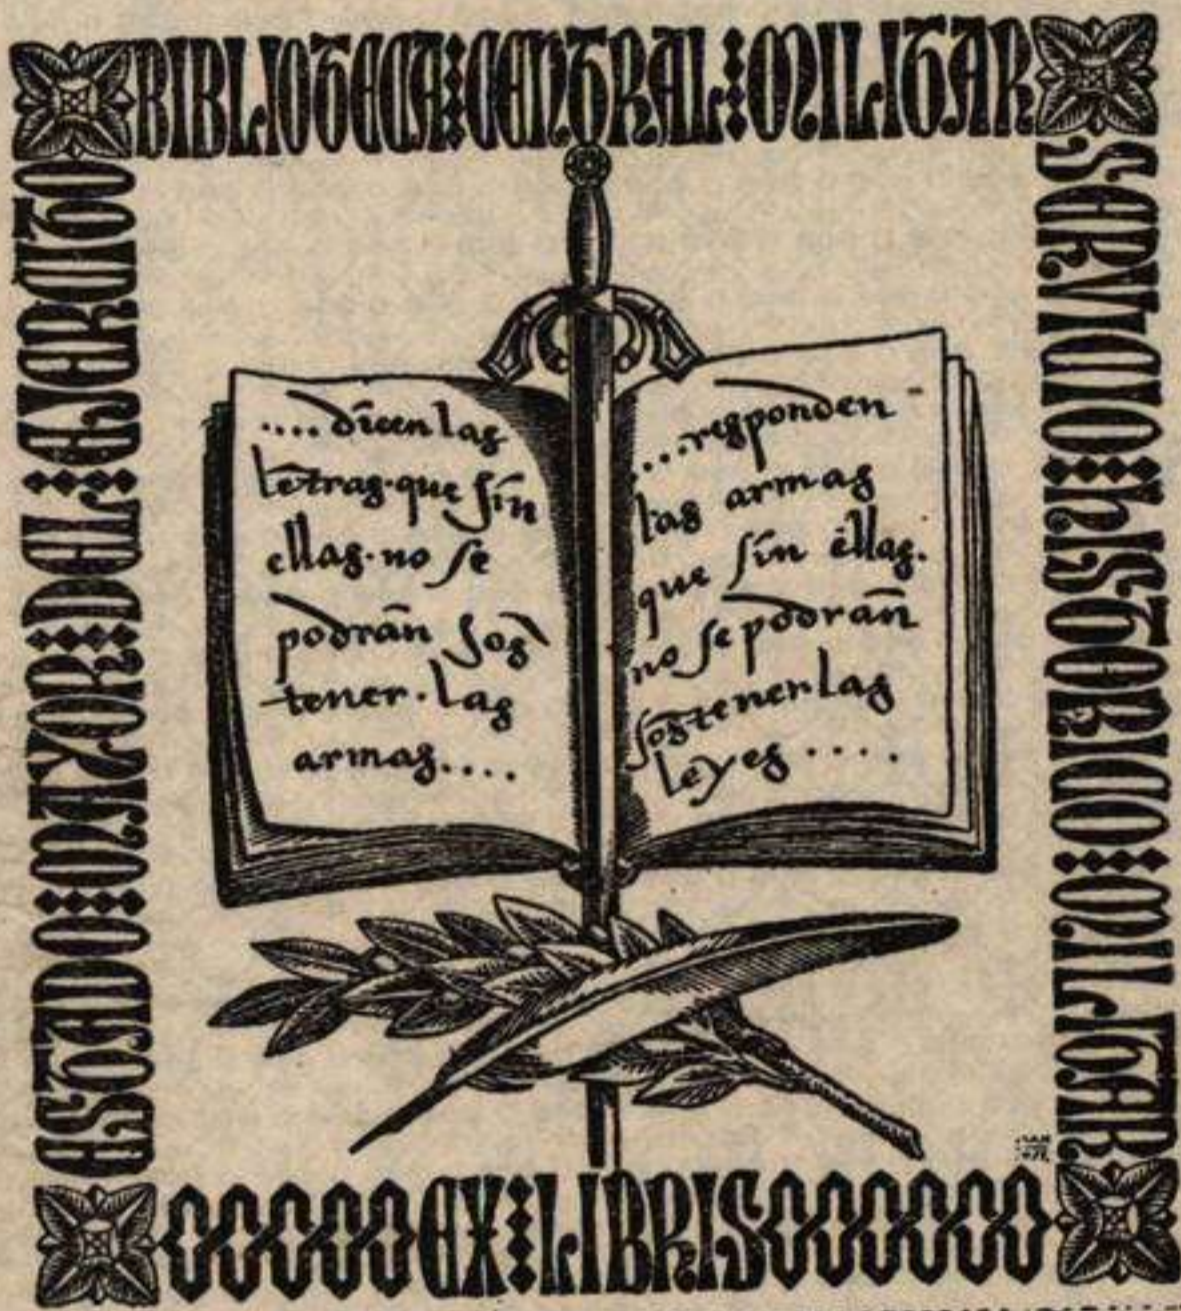 BIBLIOTECA CENTRAL MILITAR
SERVICIO HISTORICO MILITAR
ESTADO MAYOR DEL EJERCITO
....dicen las
letras·que sin
ellas·no se
podrán sos
tener·las
armas....
...responden
las armas
que sin ellas.
no se podrán
sostener las
leyes....
EX LIBRIS